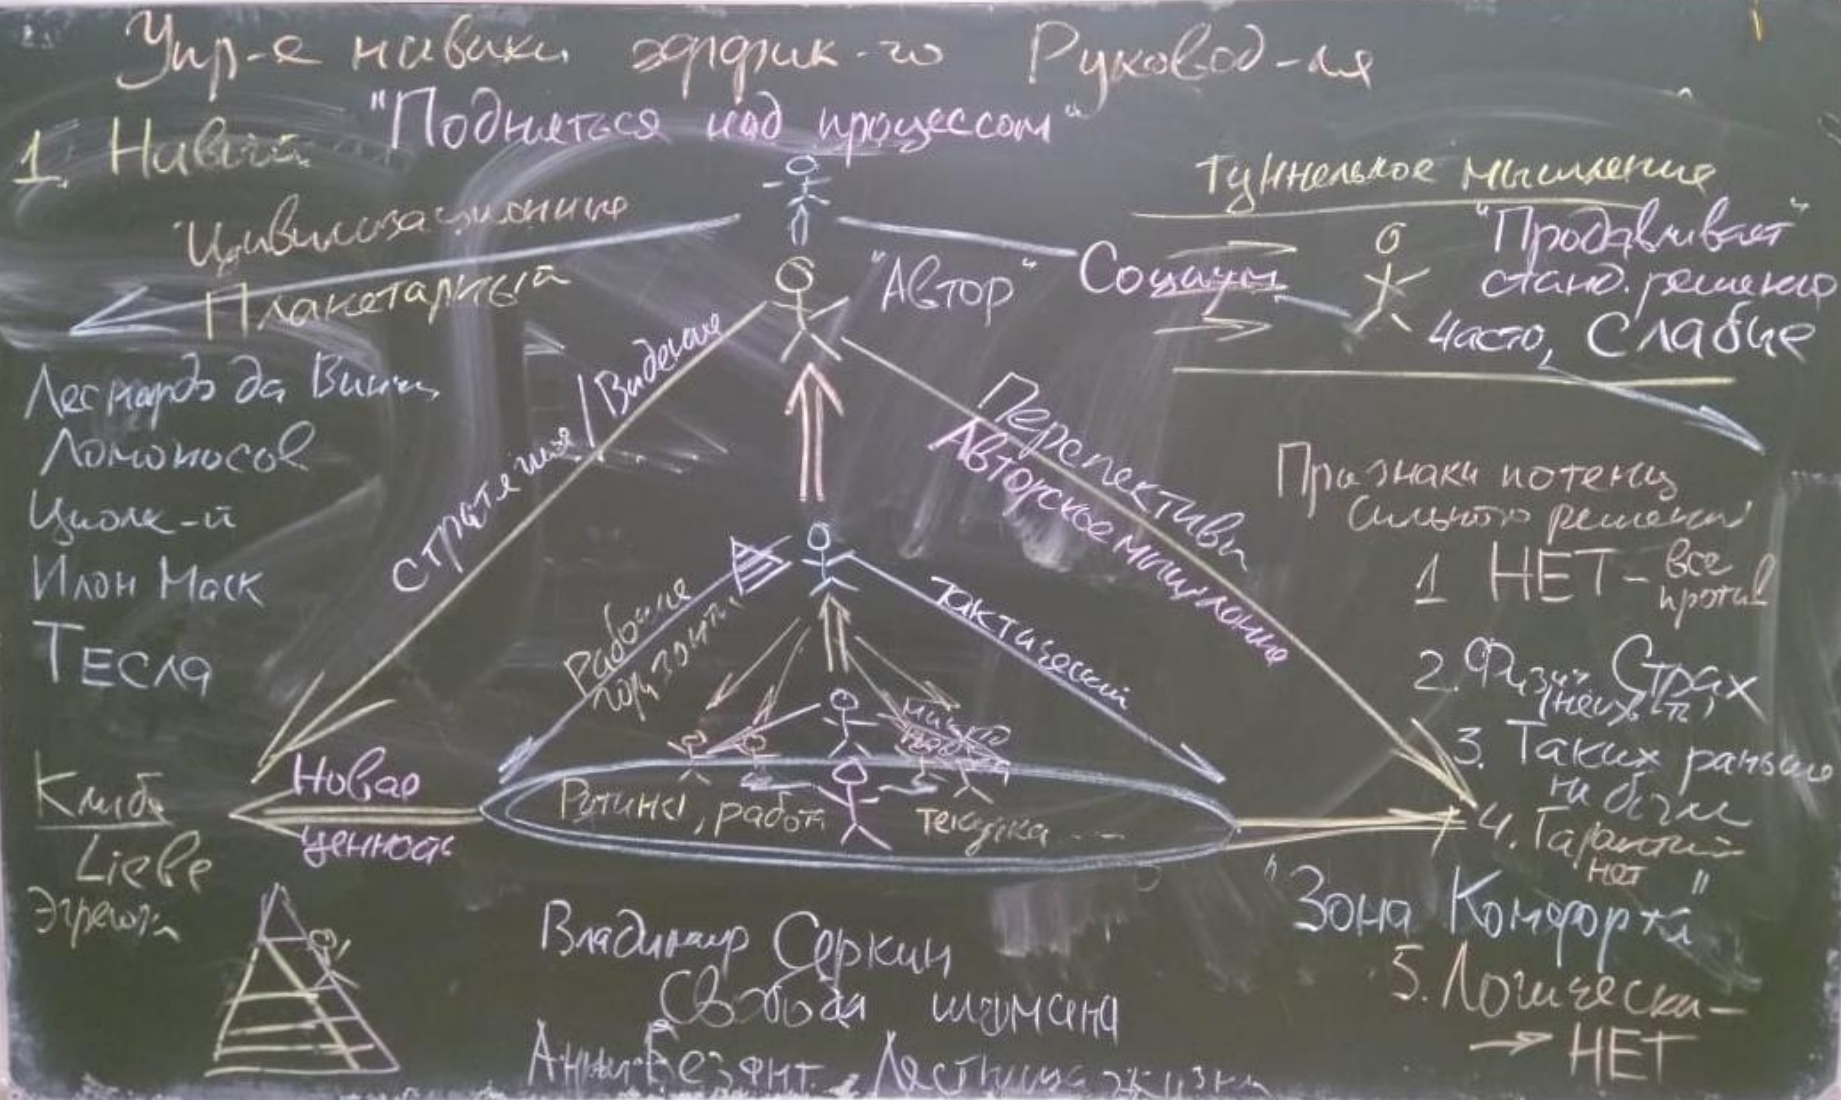 Упр-е навыки эффек-го Руковод-ля
"Подняться над процессом"
1. Навык
Цивилизационные
Планетарный
Леонардо да Винчи
Ломоносов
Циолк-й
Илон Маск
ТЕСЛА
"Автор"
Социум
Стратегия / Видение
Перспективы
Авторское мышление
Рабочие
горизонты
тактический
Новая
ценность
Рутина, работа
текучка ...
Туннельное мышление
"Продавливает"
станд. решения
Часто, Слабые
Признаки потенц
сильного решения
1 НЕТ - все
против
2. Физич Страх
3. Таких раньше
не было
4. Гарантий
нет
"Зона Комфорта"
5. Логически -
НЕТ
Lieве
Эгрегоры
Владимир Серкин
Свобода шамана
Анни Безант. Лестница жизни